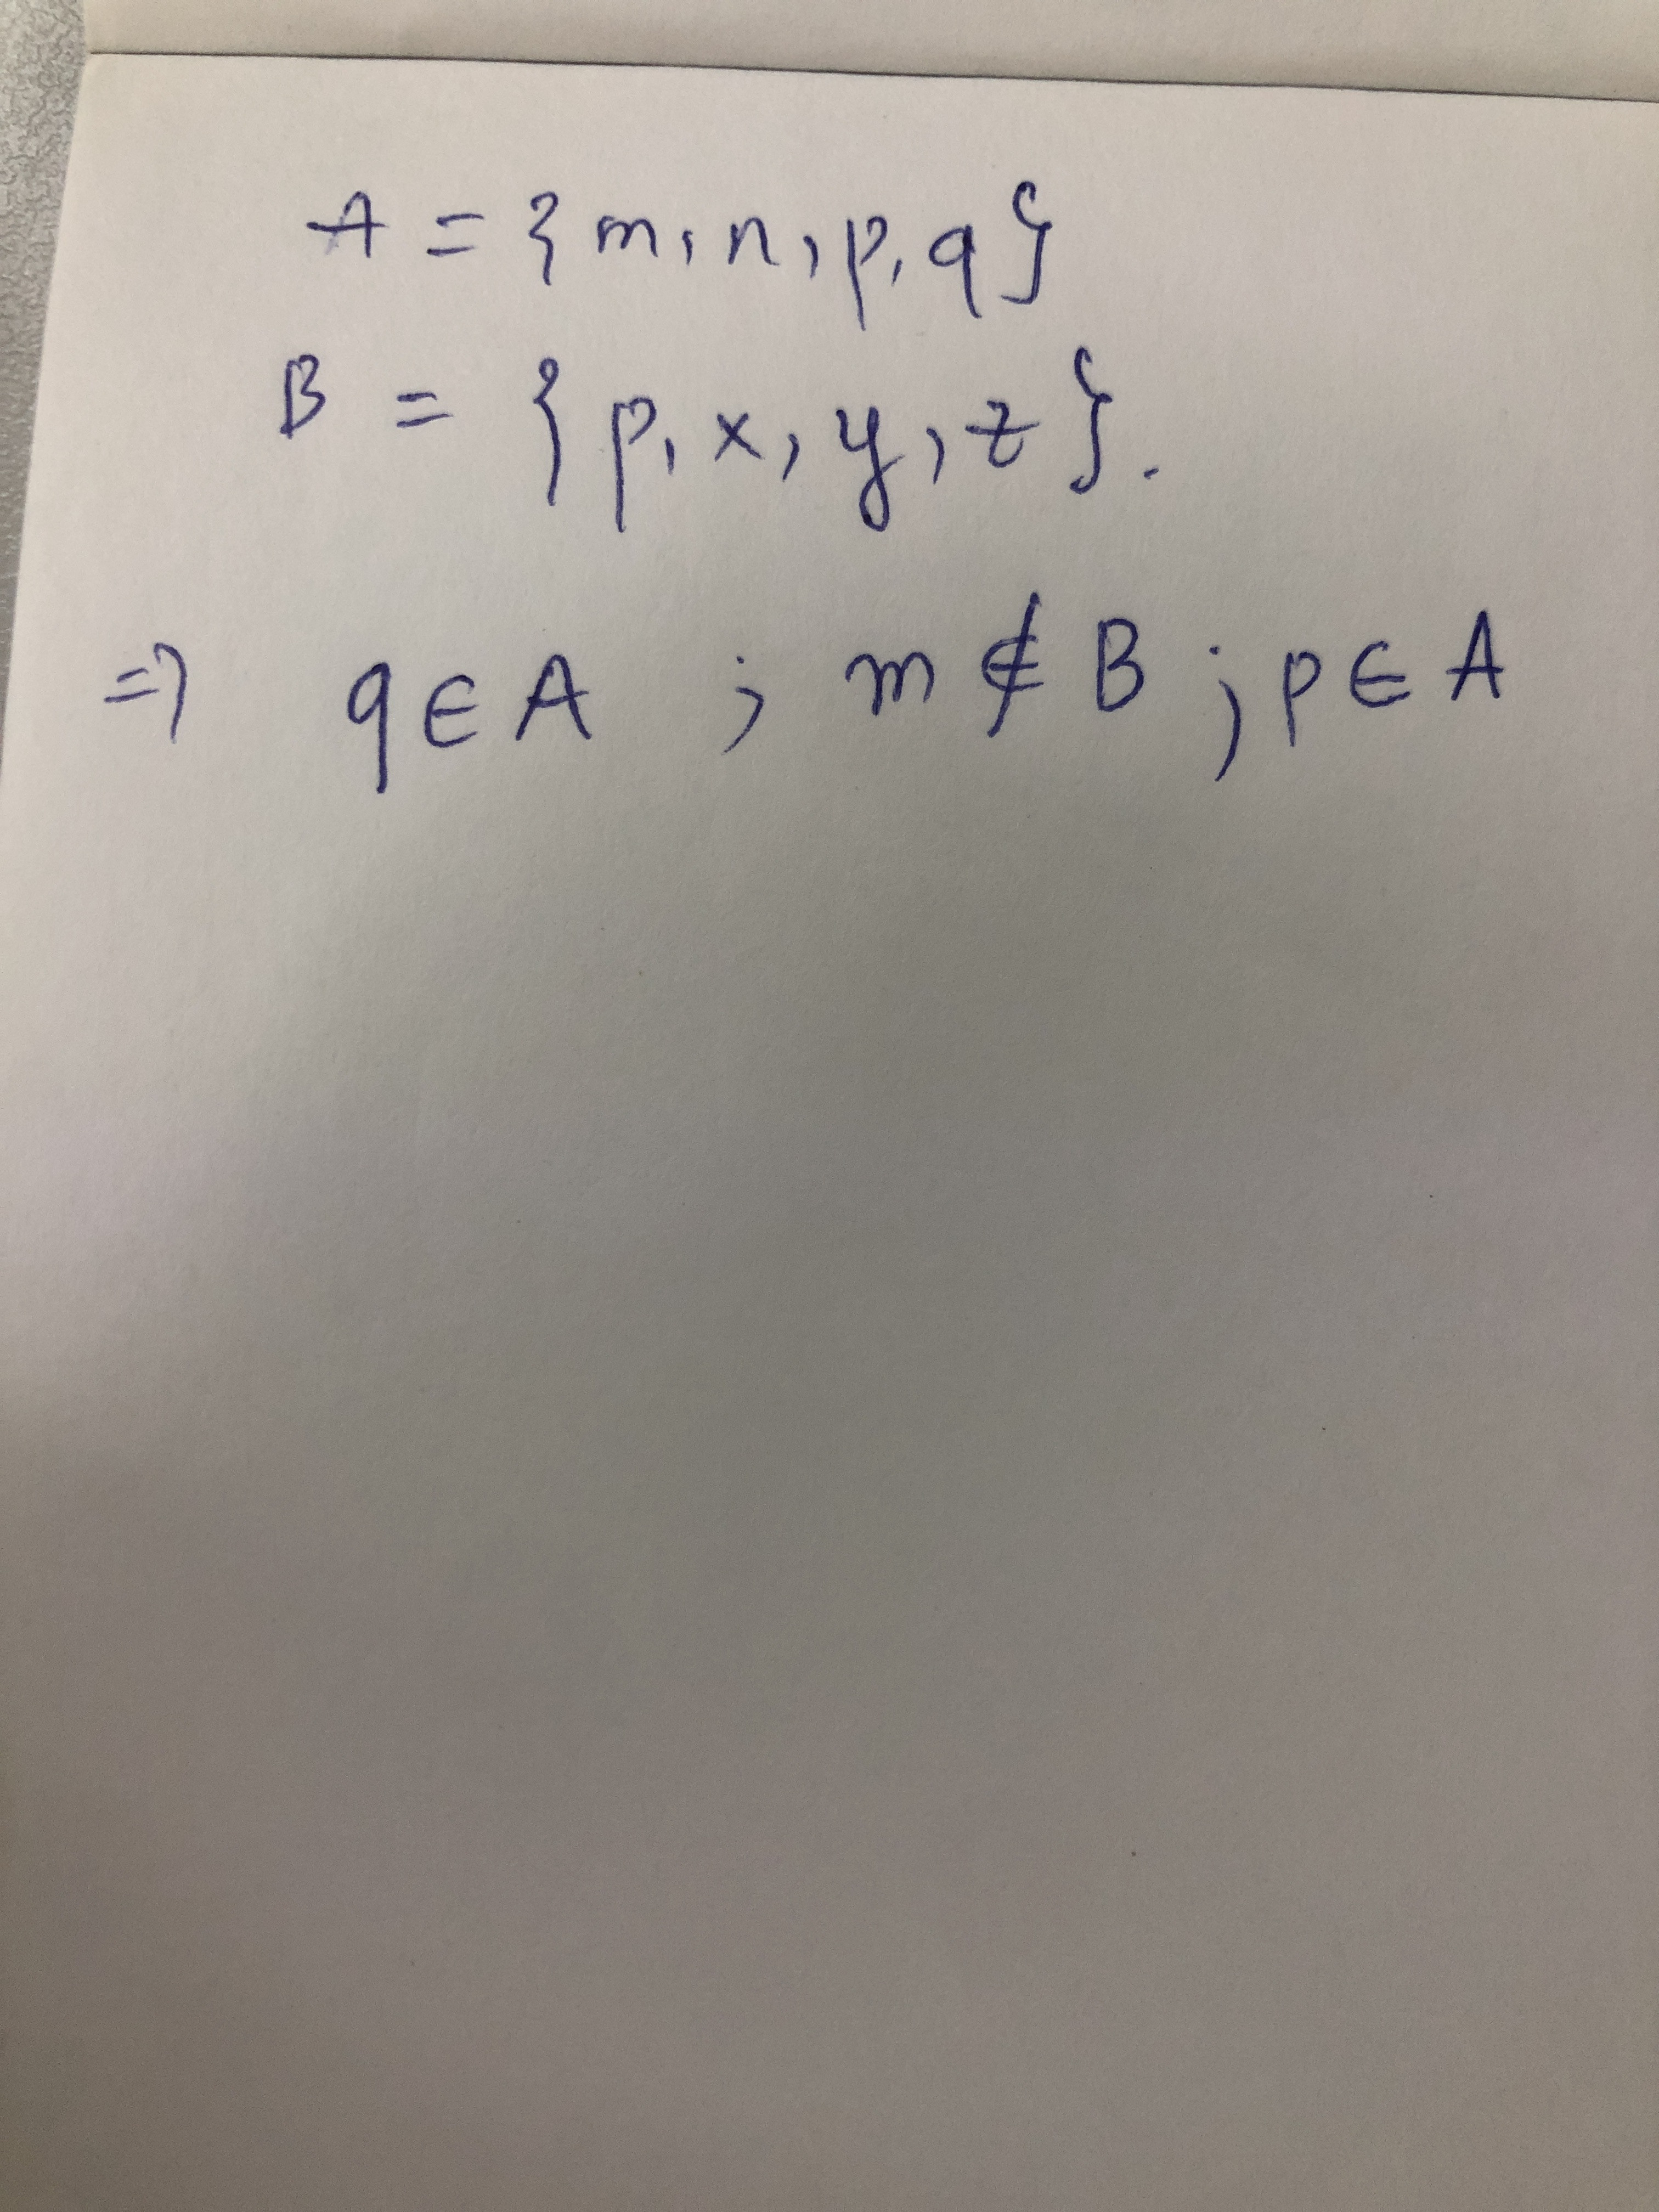 A = {m, n, p, q}
B = {p, x, y, z}.
=> q ∈ A ; m ∉ B ; p ∈ A